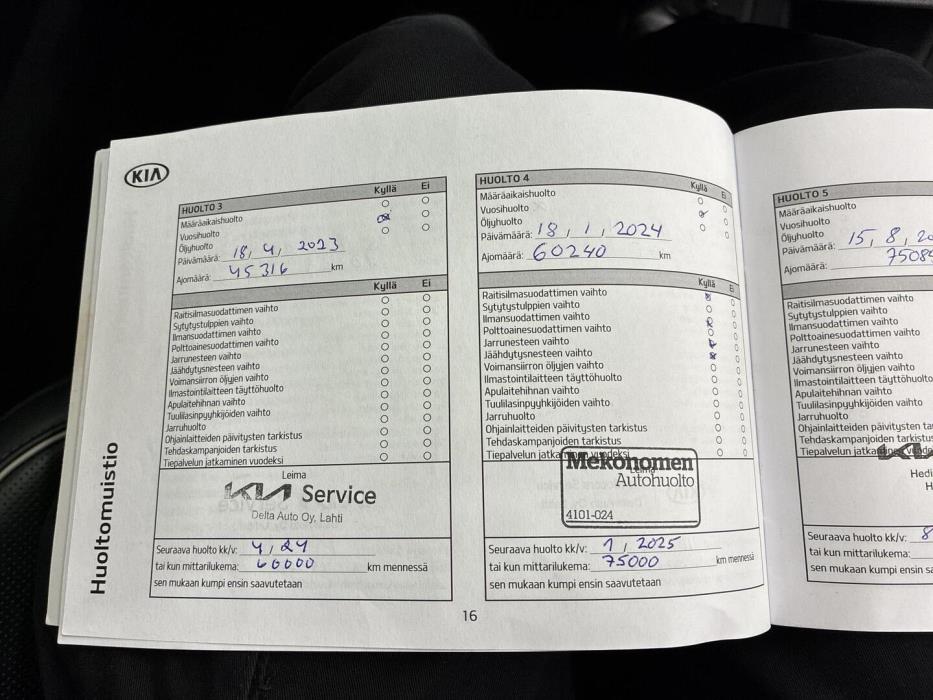 KIA
HUOLTO 3 Kyllä Ei
Määräaikaishuolto
Vuosihuolto
Öljyhuolto
Päivämäärä: 18, 4, 2023
Ajomäärä: 45316 km
Kyllä Ei
Raitisilmasuodattimen vaihto
Sytytystulppien vaihto
Ilmansuodattimen vaihto
Polttoainesuodattimen vaihto
Jarrunesteen vaihto
Jäähdytysnesteen vaihto
Voimansiirron öljyjen vaihto
Ilmastointilaitteen täyttöhuolto
Apulaitehihnan vaihto
Tuulilasinpyyhkijöiden vaihto
Jarruhuolto
Ohjainlaitteiden päivitysten tarkistus
Tehdaskampanjoiden tarkistus
Tiepalvelun jatkaminen vuodeksi
Leima
KIA Service
Delta Auto Oy, Lahti
Seuraava huolto kk/v: 4, 24
tai kun mittarilukema: 60000 km mennessä
sen mukaan kumpi ensin saavutetaan
Huoltomuistio
HUOLTO 4 Kyllä Ei
Määräaikaishuolto
Vuosihuolto
Öljyhuolto
Päivämäärä: 18, 1, 2024
Ajomäärä: 60240 km
Kyllä Ei
Raitisilmasuodattimen vaihto
Sytytystulppien vaihto
Ilmansuodattimen vaihto
Polttoainesuodattimen vaihto
Jarrunesteen vaihto
Jäähdytysnesteen vaihto
Voimansiirron öljyjen vaihto
Ilmastointilaitteen täyttöhuolto
Apulaitehihnan vaihto
Tuulilasinpyyhkijöiden vaihto
Jarruhuolto
Ohjainlaitteiden päivitysten tarkistus
Tehdaskampanjoiden tarkistus
Tiepalvelun jatkaminen vuodeksi
Leima
Mekonomen
Autohuolto
4101-024
Seuraava huolto kk/v: 1, 2025
tai kun mittarilukema: 75000 km mennessä
sen mukaan kumpi ensin saavutetaan
16
HUOLTO 5
Määräaikaishuolto
Vuosihuolto
Öljyhuolto
Päivämäärä: 15, 8, 20
Ajomäärä: 7508
Raitisilmasuodattimen vaihto
Sytytystulppien vaihto
Ilmansuodattimen vaihto
Polttoainesuodattimen vaihto
Jarrunesteen vaihto
Jäähdytysnesteen vaihto
Voimansiirron öljyjen vaihto
Ilmastointilaitteen täyttöhuolto
Apulaitehihnan vaihto
Tuulilasinpyyhkijöiden vaihto
Jarruhuolto
Ohjainlaitteiden päivitysten ta
Tehdaskampanjoiden tarkistus
Tiepalvelun jatkaminen vuode
KIA
Hedi
H
Seuraava huolto kk/v: 8
tai kun mittarilukema:
sen mukaan kumpi ensin sa